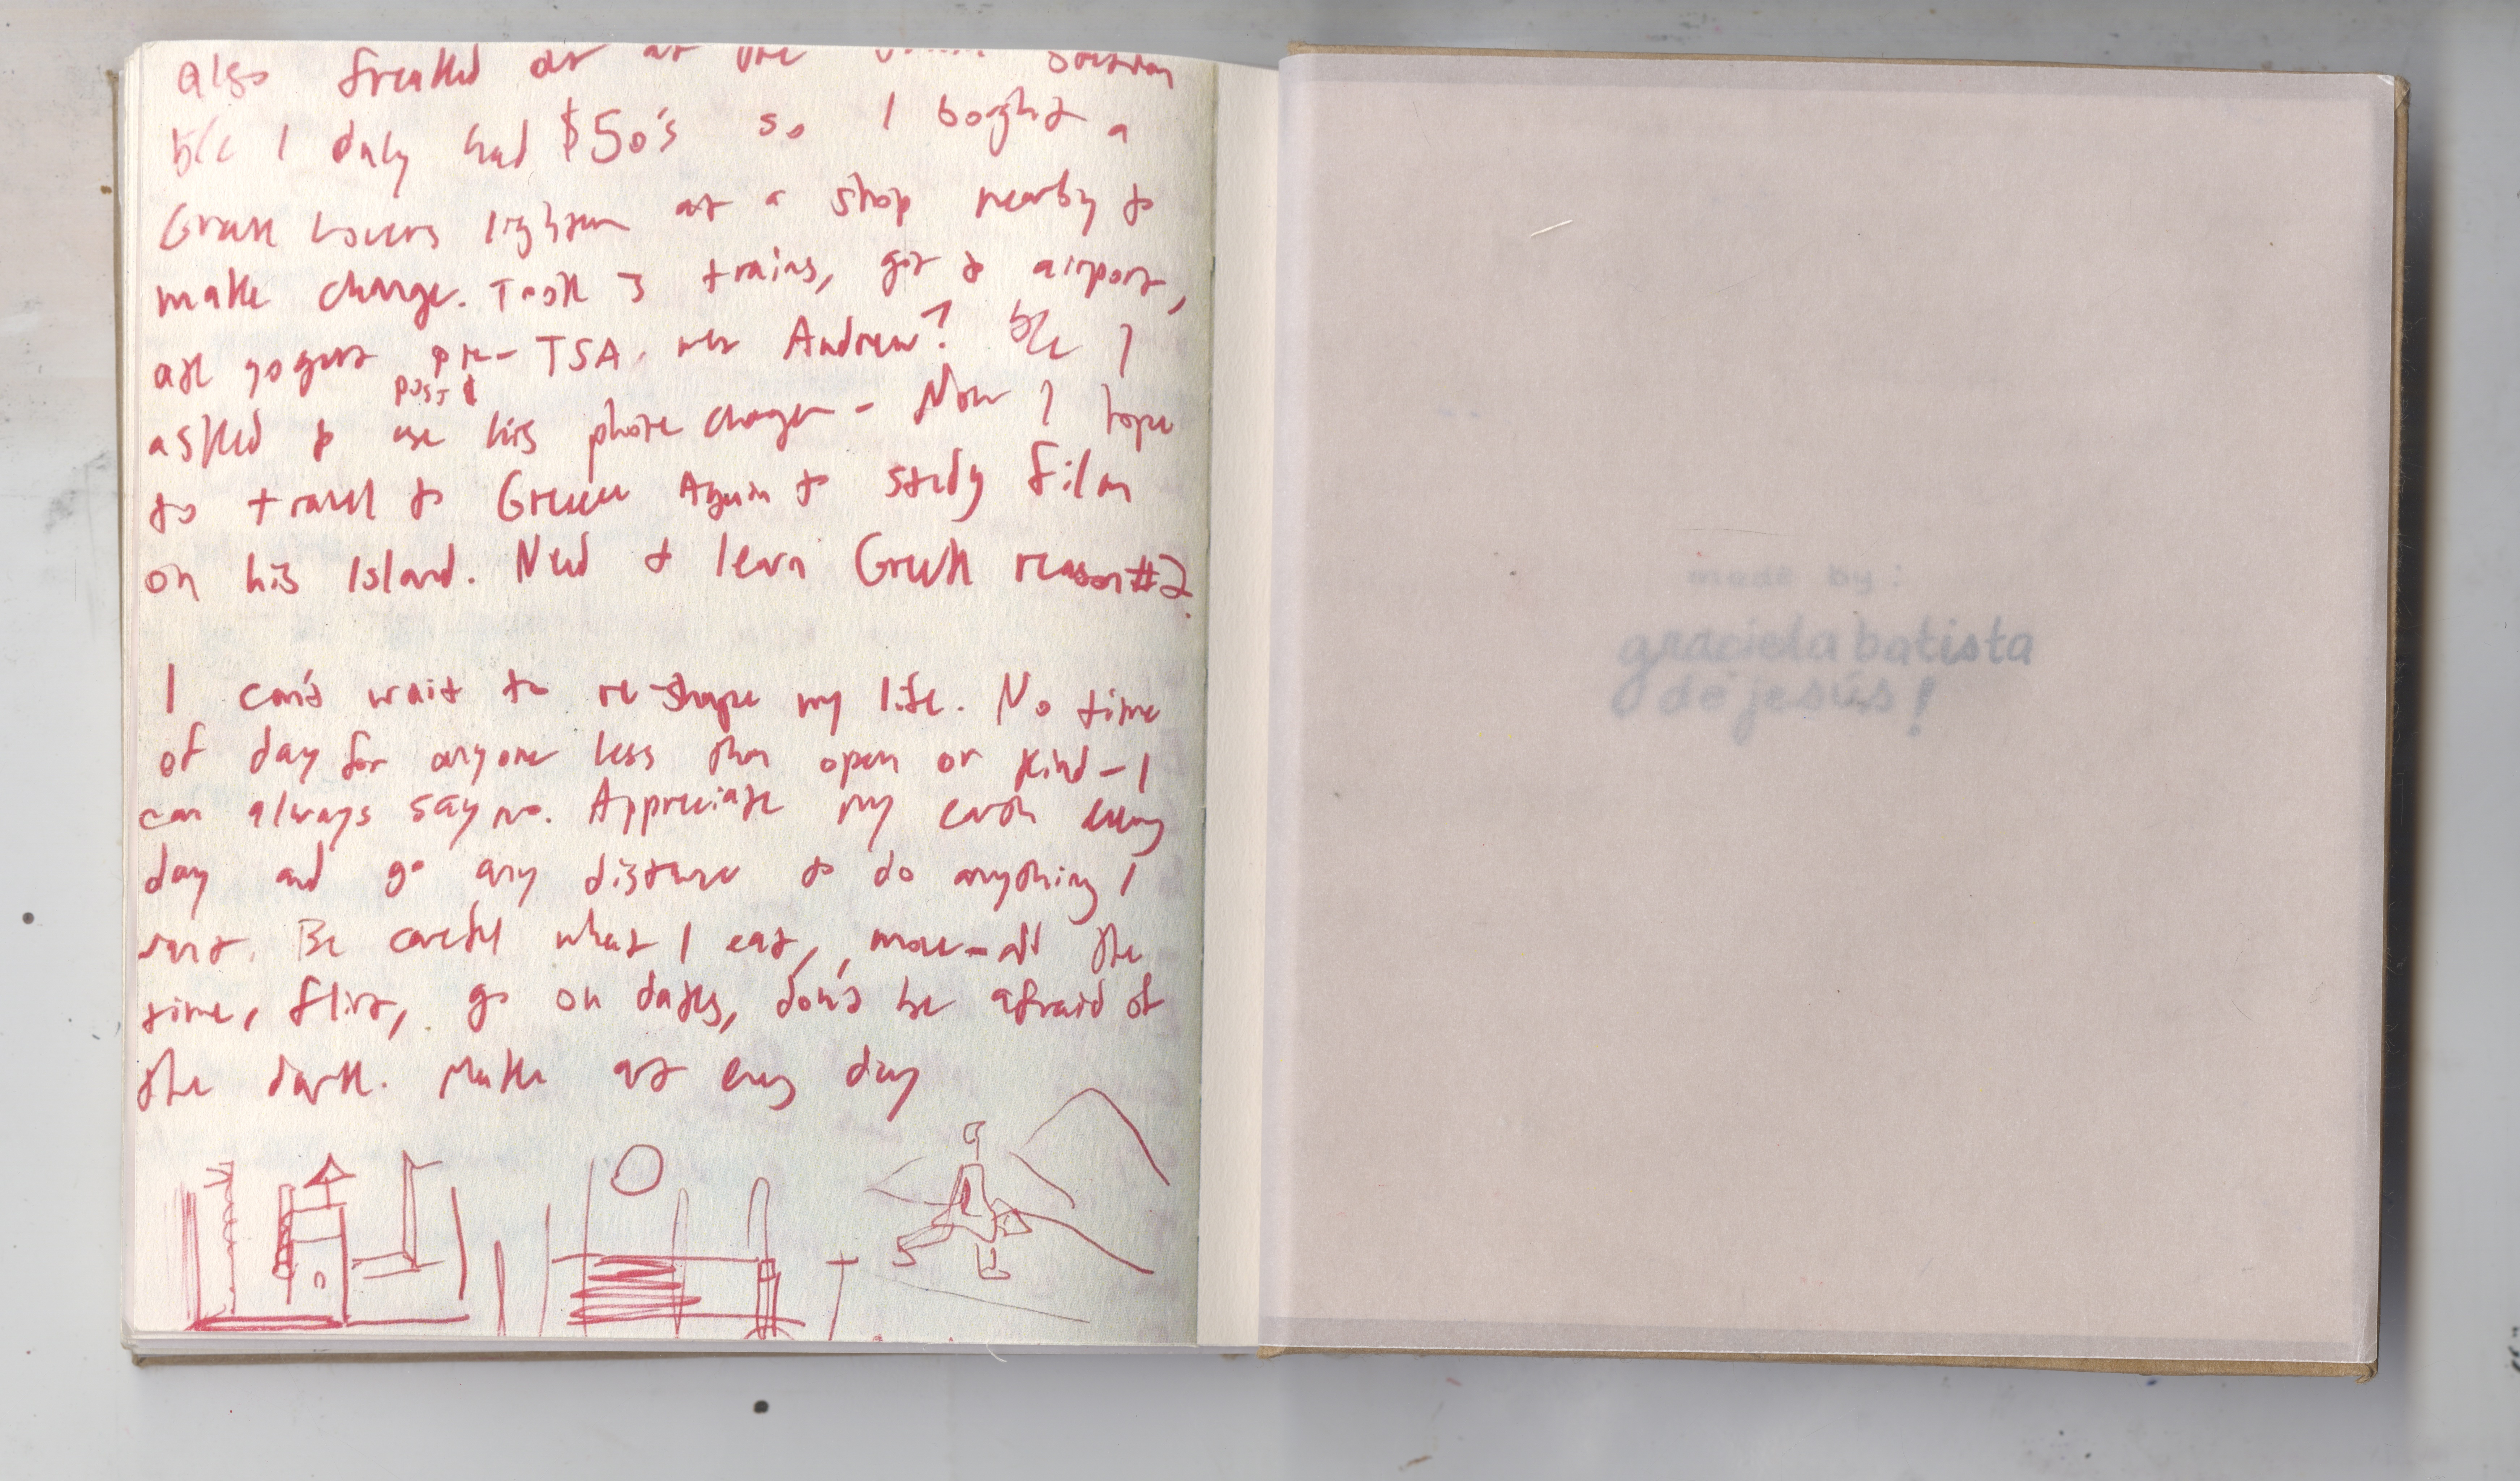 also freaked out at the train station
b/c I only had $50's so I boght a
Greek Lovers lighter at a shop nearby to
make change. Took 3 trains, got to airport,
ate yogurt pre-TSA, met Andrew? b/c I
post
asked to use his phone charger - Now I hope
to travel to Greece Again to study film
on his Island. Need to learn Greek reason #2.
I can't wait to re-shape my life. No time
of day for anyone less than open or kind - I
can always say no. Appreciate my earth every
day and go any distance to do anything I
want. Be careful what I eat, move - all the
time, flirt, go on dates, don't be afraid of
the dark. Make art every day
made by:
graciela batista
de jesús!